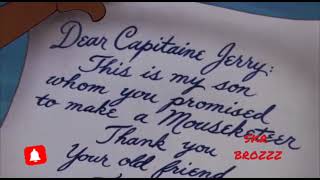 Dear Capitaine Jerry:
This is my son
whom you promised
to make a Mouseketeer
Thank you
BROZZZ
Your old friend